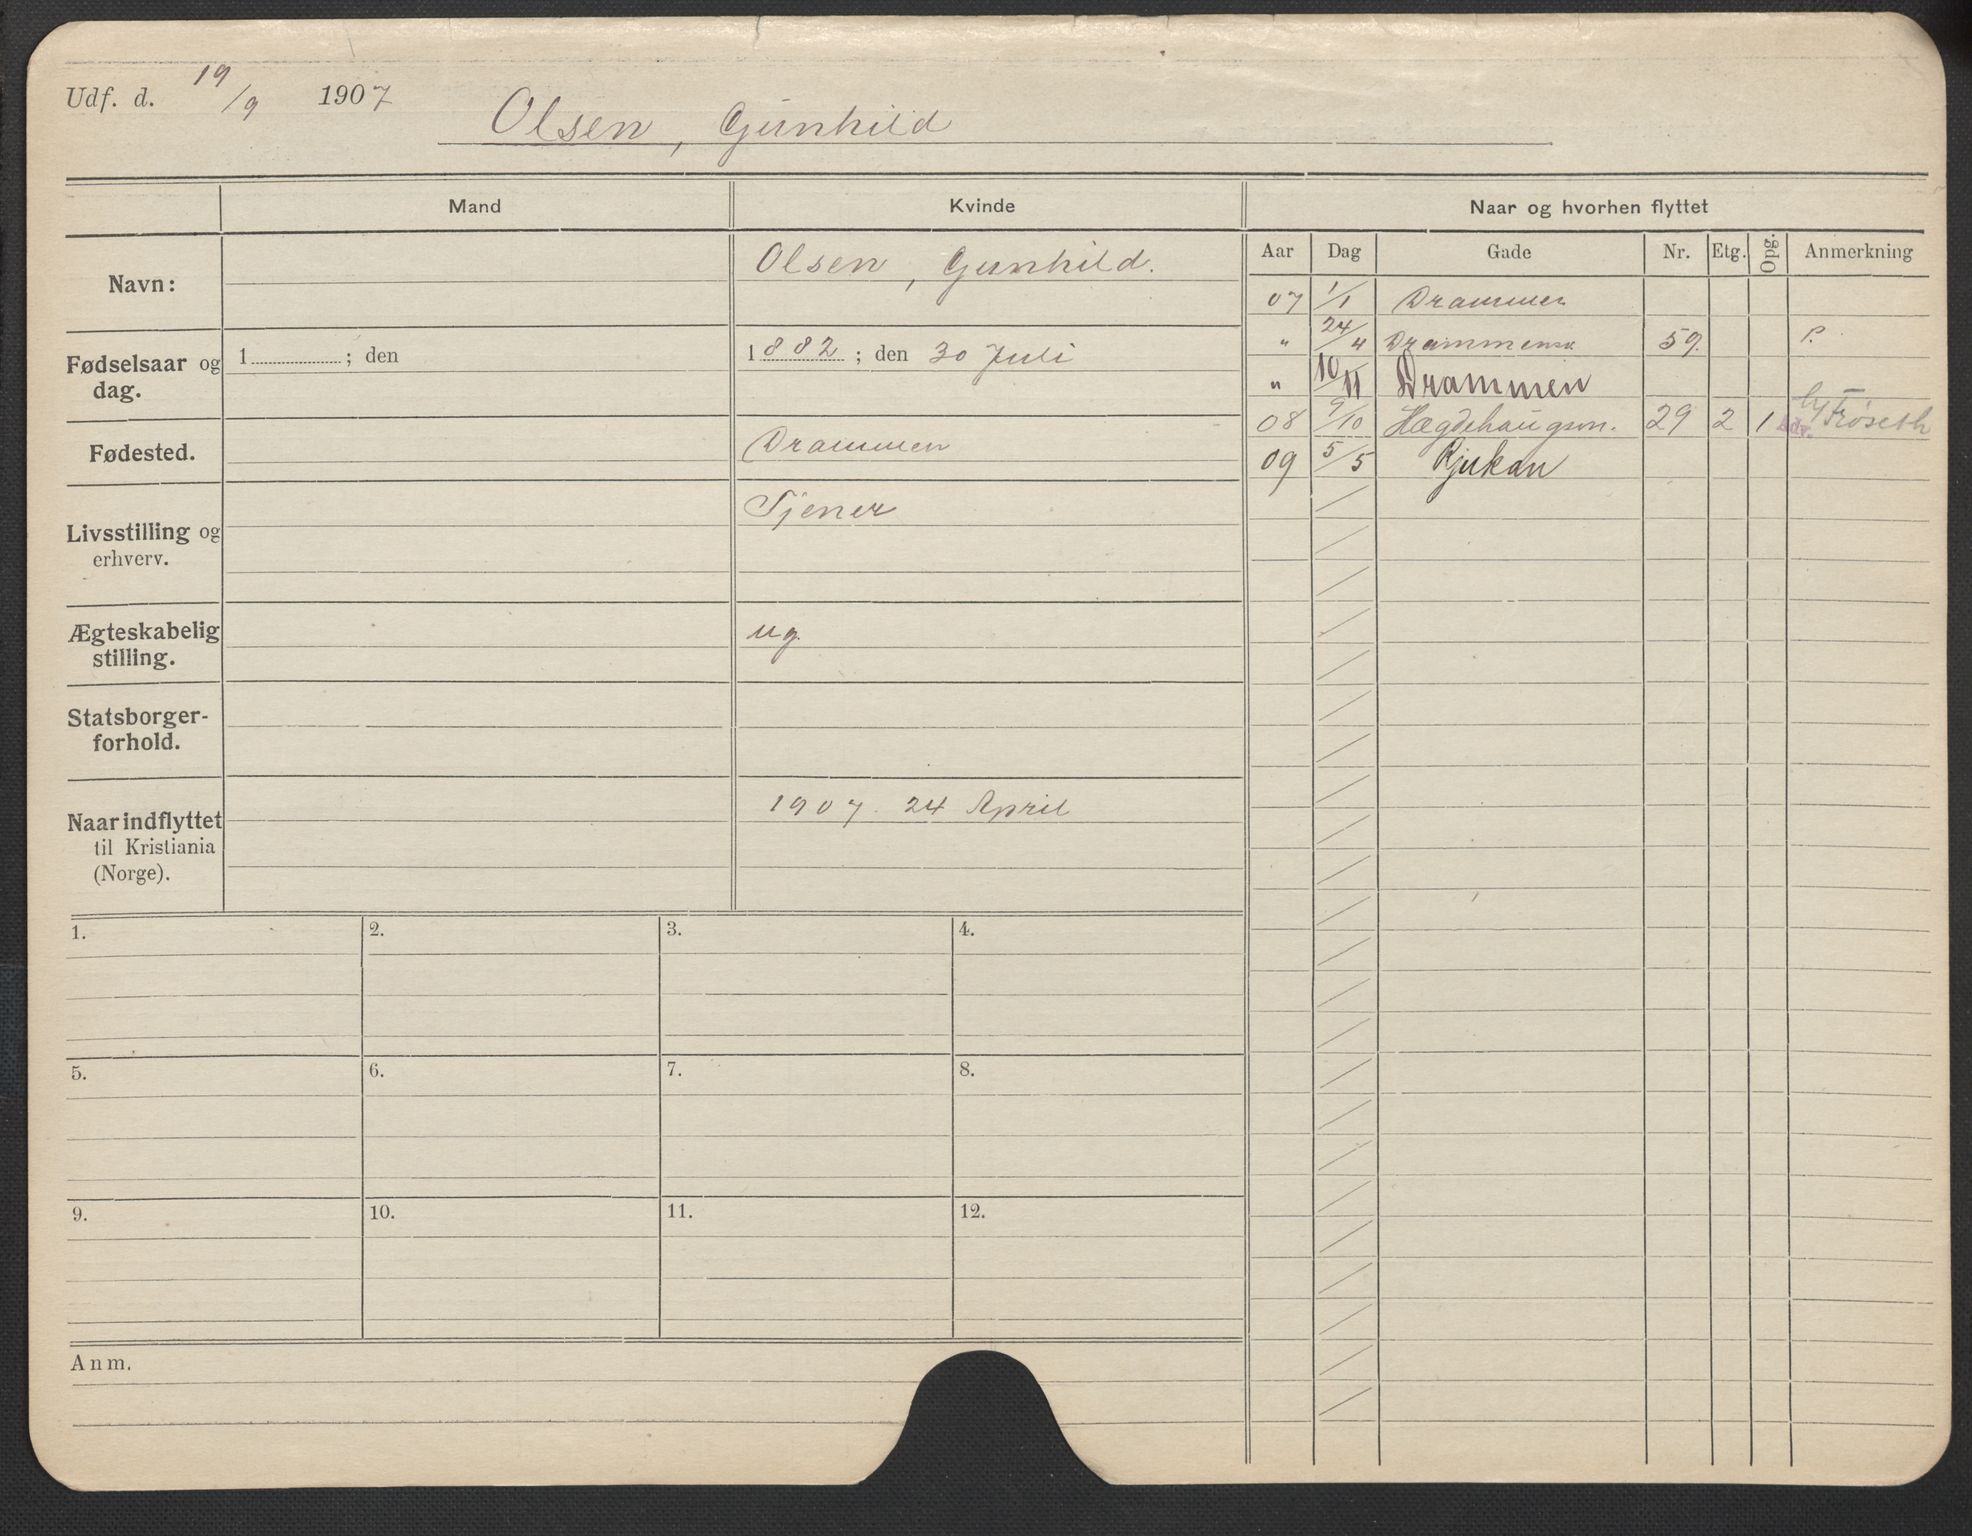 Udf. d. 19/9 1907 Olsen, Gunhild
Mand Kvinde Naar og hvorhen flyttet
Aar Dag Gade Nr. Etg. Opg. Anmerkning
Navn: Olsen, Gunhild.
Fødselsaar og dag. 1 ; den 1882 ; den 30 Juli
Fødested. Drammen
Livsstilling og erhverv. Tjener
Ægteskabelig stilling. ug.
Statsborger-
forhold.
Naar indflyttet 1907. 24 April
til Kristiania
(Norge).
07 1/1 Drammen
" 24/4 Drammensv 59. P.
" 10/11 Drammen
08 9/10 Hægdehaugsvn. 29 2 1 Adv. Frøseth
09 5/5 Rjukan
1. 2. 3. 4.
5. 6. 7. 8.
9. 10. 11. 12.
Anm.